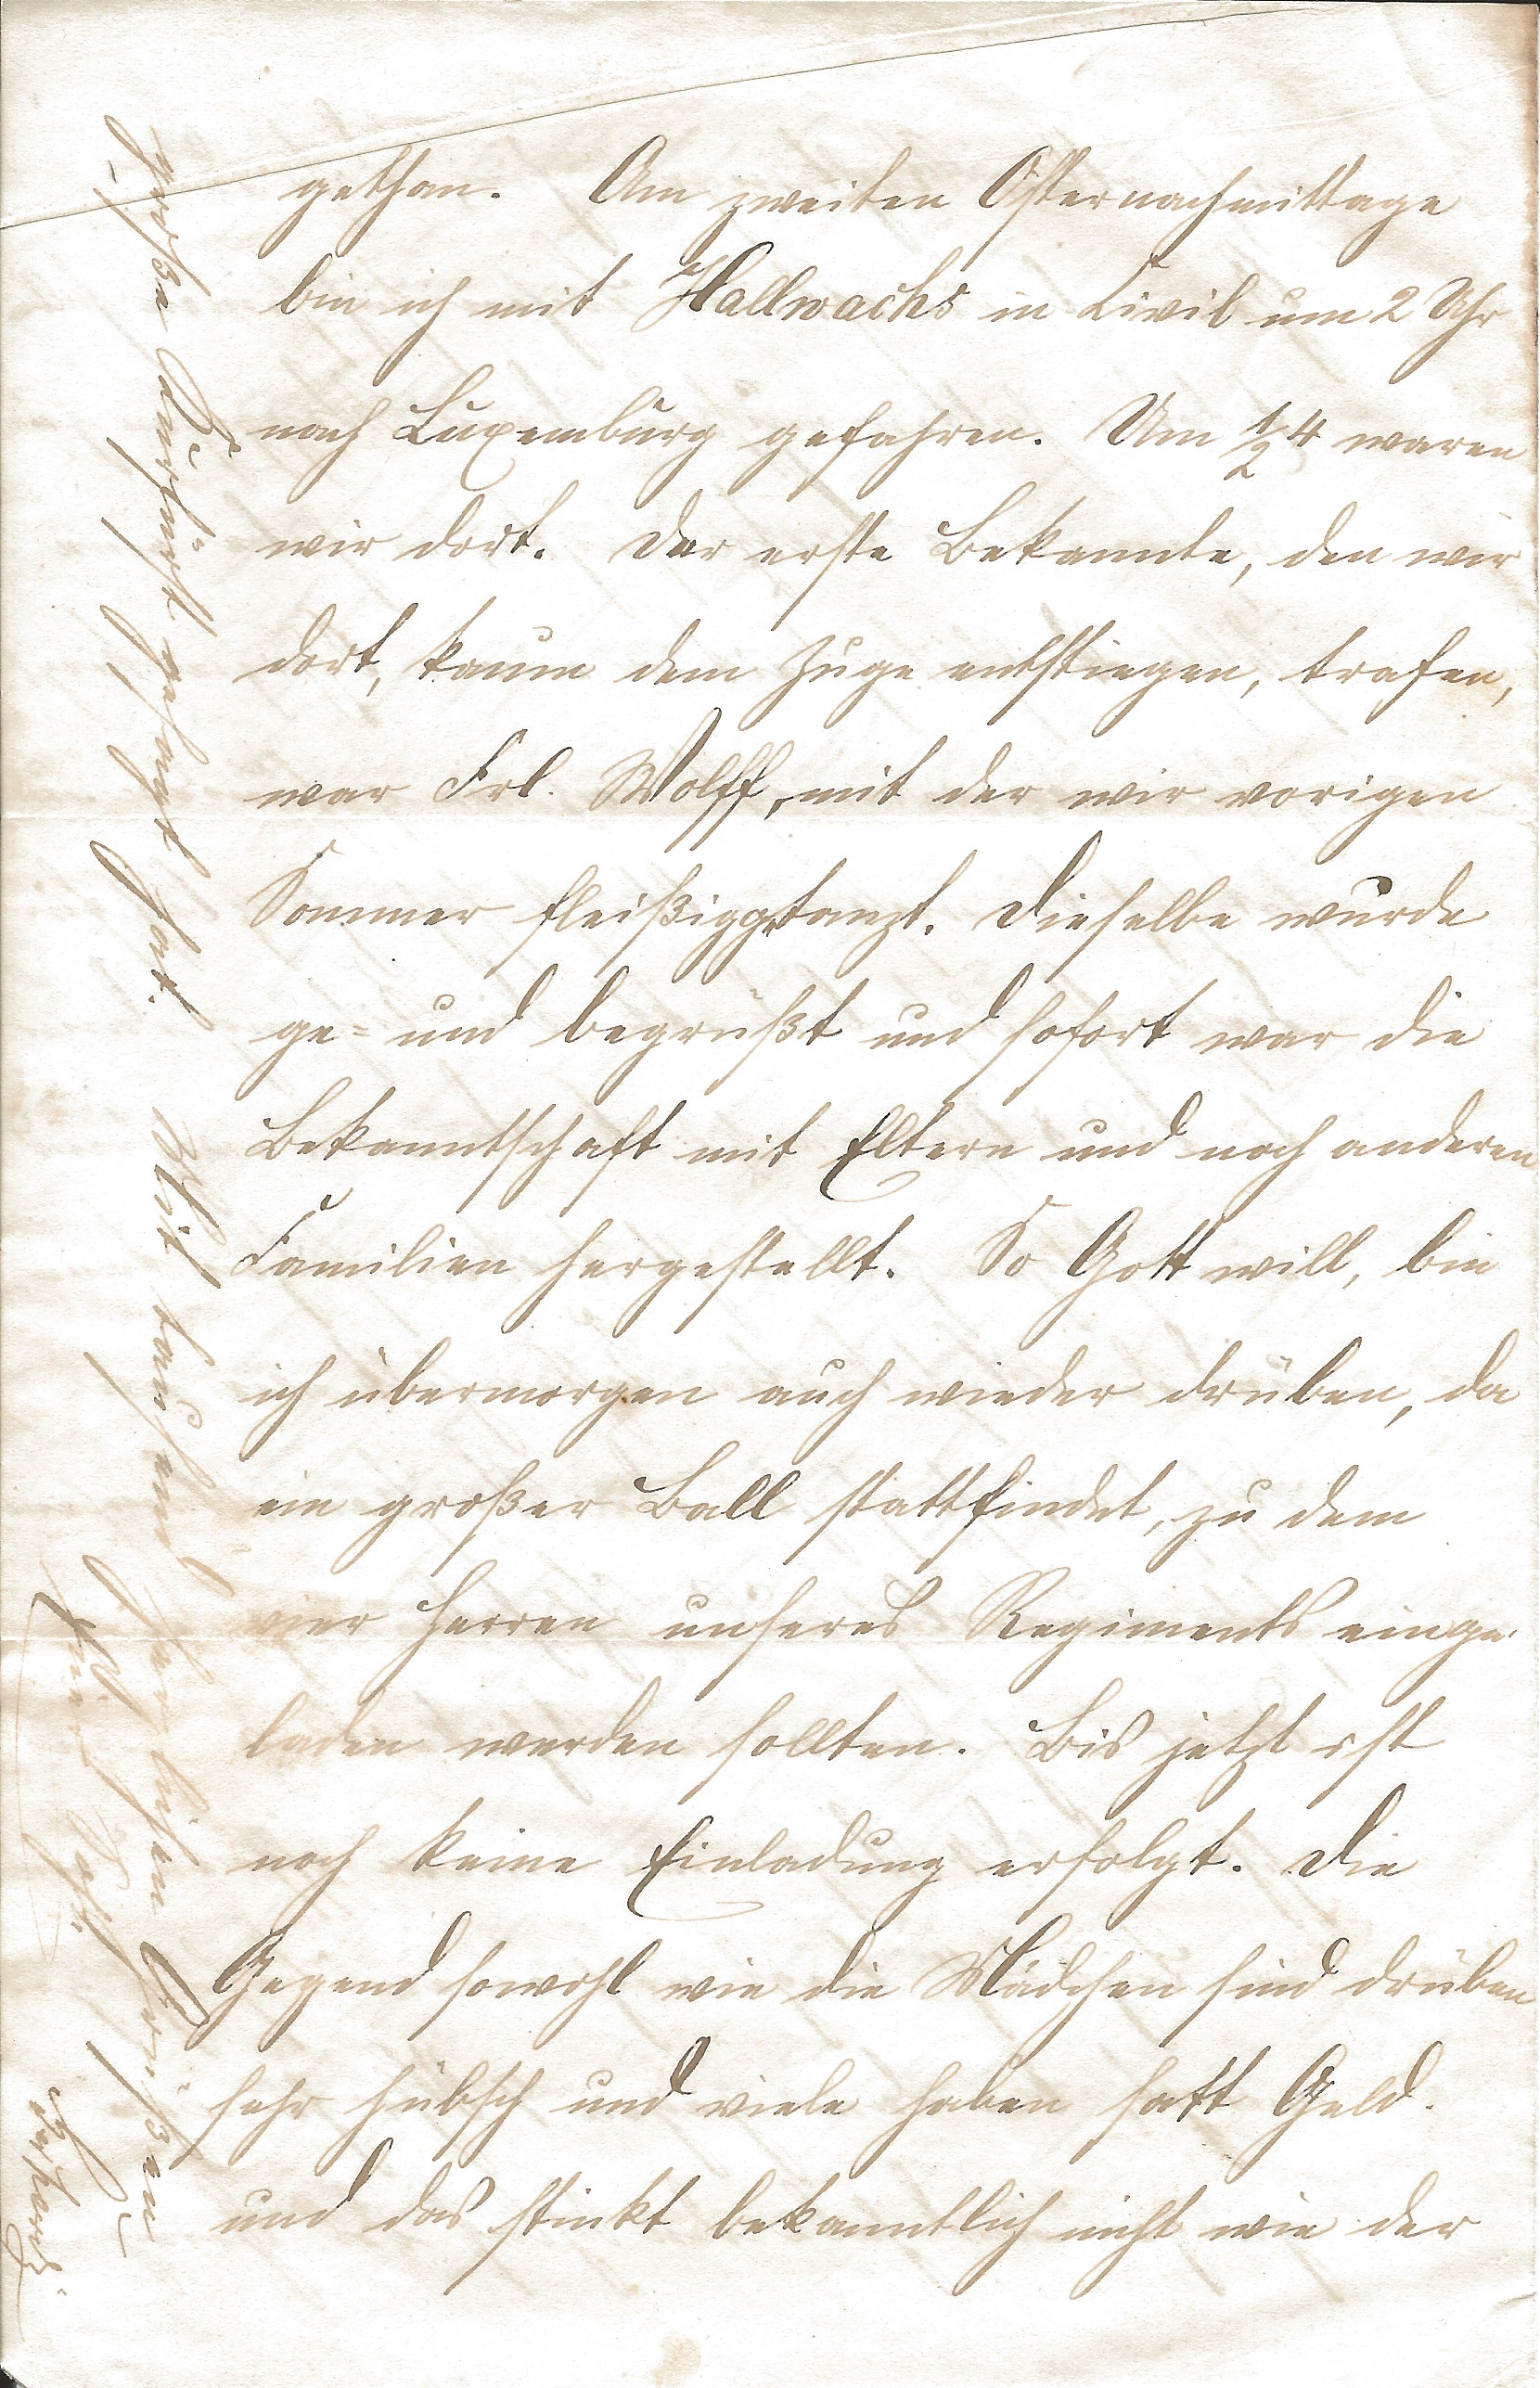 gethan. Am zweiten Osternachmittage
bin ich mit Hallwachs in Civil um 2 Uhr
nach Luxemburg gefahren. Um ½4 waren
wir dort. Der erste Bekannte, den wir
dort, kaum dem Zuge entstiegen, trafen,
war Frl. Wolff, mit der wir vorigen
Sommer fleißig getanzt. Dieselbe wurde
ge- und begrüßt und sofort war die
Bekanntschaft mit Eltern und noch anderen
Familien hergestellt. So Gott will, bin
ich übermorgen auch wieder drüben, da
ein großer Ball stattfindet, zu dem
vier Herren unseres Regiments einge-
laden werden sollten. Bis jetzt ist
noch keine Einladung erfolgt. Die
Gegend sowohl wie die Mädchen sind drüben
sehr hübsch und viele haben satt Geld.
und das stinkt bekanntlich nicht wie der
große gehabt hat. Mit tausend herzlichen Grüßen